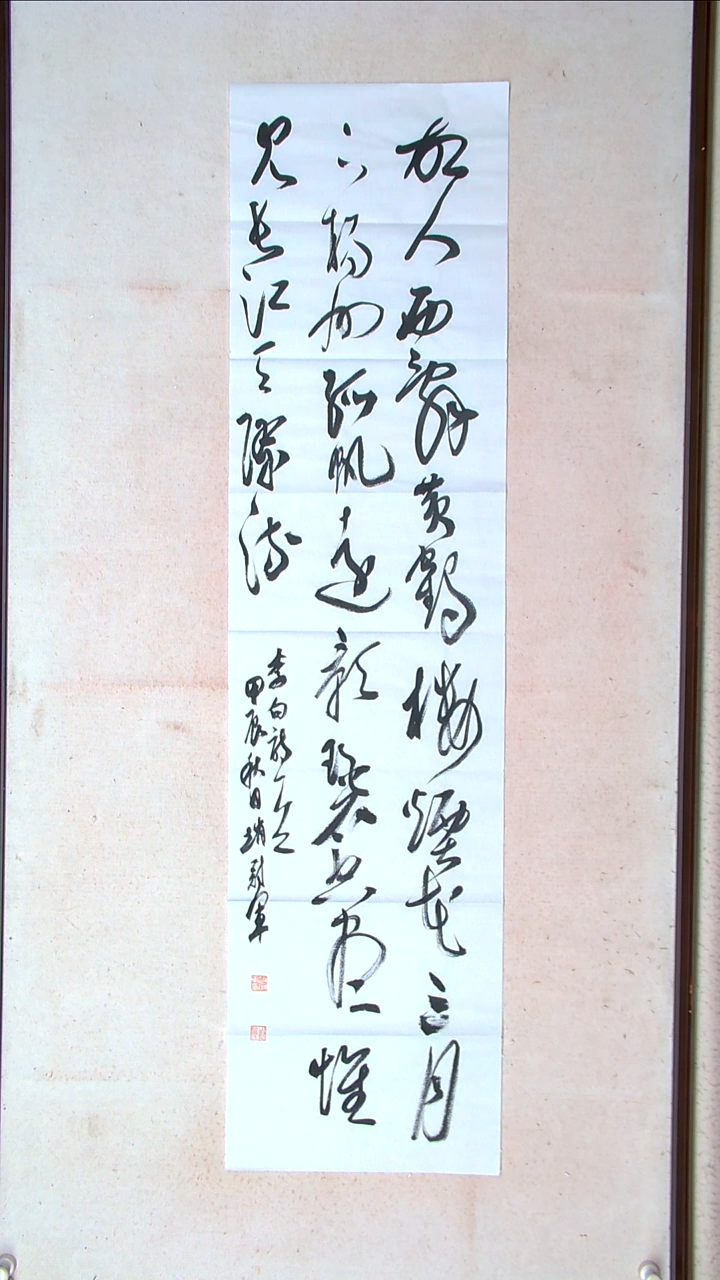 故人西辭黃鶴樓煙花三月
下楊州孤帆遠影碧空盡惟
見長江天際流
李白詩一首
甲辰秋日